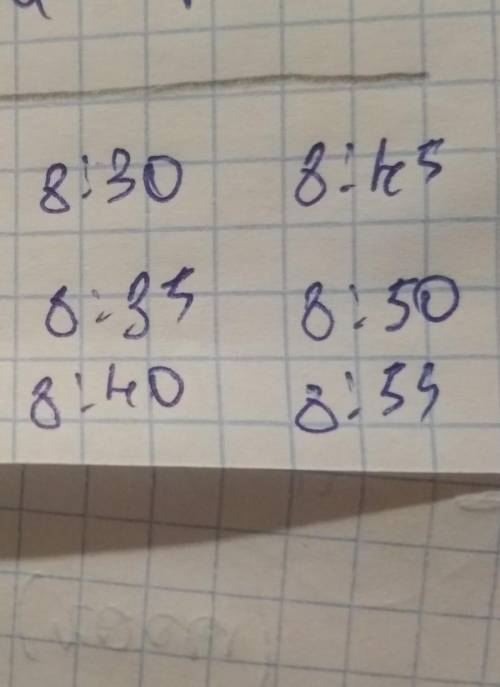 8:30 8:45
8:35 8:50
8:40 8:55